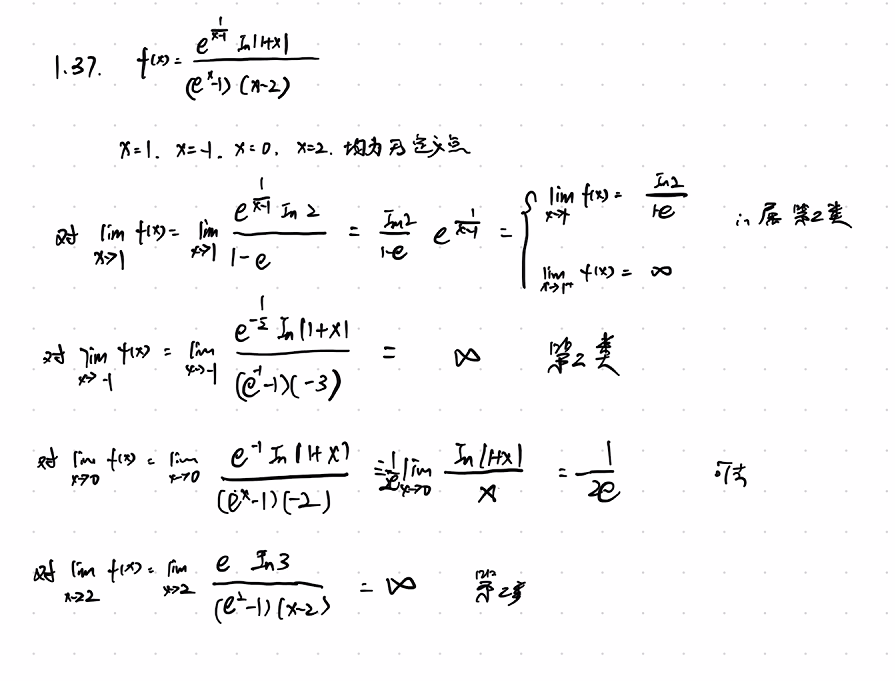 1.37. f(x) = \frac{e^{\frac{1}{x-1}} ln|1+x|}{(e^x-1)(x-2)}
x=1. x=-1. x=0. x=2. 均为无定义点
对 \lim_{x→1} f(x) = \lim_{x→1} \frac{e^{\frac{1}{x-1}} ln 2}{1-e} = \frac{ln2}{1-e} e^{\frac{1}{x-1}} = { \lim_{x→1^-} f(x) = \frac{ln2}{1-e} ; \lim_{x→1^+} f(x) = ∞ 第2类
对 \lim_{x→-1} f(x) = \lim_{x→-1} \frac{e^{-\frac{1}{2}} ln|1+x|}{(e^{-1}-1)(-3)} = ∞ 第2类
对 \lim_{x→0} f(x) = \lim_{x→0} \frac{e^{-1} ln|1+x|}{(e^x-1)(-2)} = \frac{1}{2e} \lim_{x→0} \frac{ln|1+x|}{x} = \frac{1}{2e} 可去
对 \lim_{x→2} f(x) = \lim_{x→2} \frac{e ln3}{(e^2-1)(x-2)} = ∞ 第2类